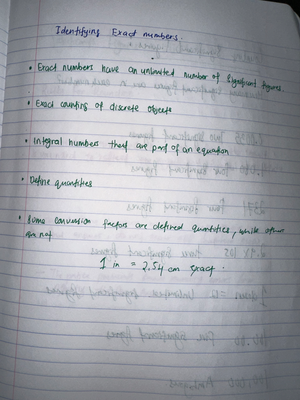 Identifying Exact numbers.
• Exact numbers have an unlimited number of significant figures.
• Exact counting of discrete objects
• Integral numbers that are part of an equation
• Define quantities
• Some conversion factors are defined quantities, while others
are not
1 in = 2.54 cm exact.